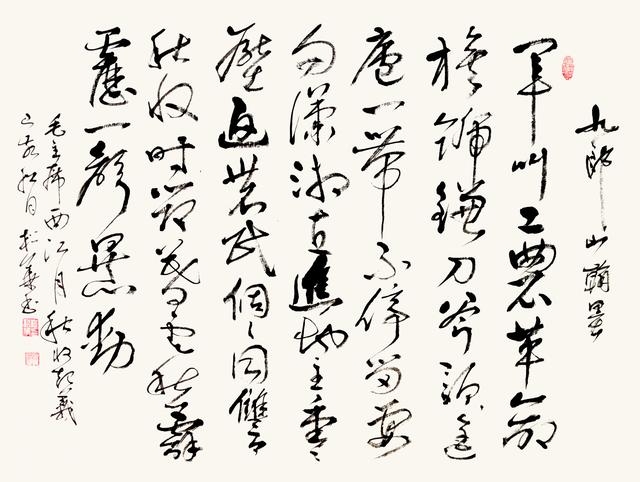 九郎山翰墨
軍叫工農革命
旗號鐮刀斧頭匡
廬一帶不停留要
向瀟湘直進地主重々
壓迫農民個々同讎
秋收時節暮雲愁霹
靂一聲暴動
毛主席西江月秋收起義